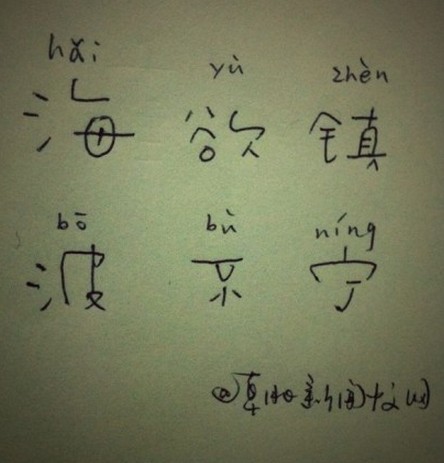 hǎi yù zhèn
海 欲 镇
bō bù níng
波 不 宁